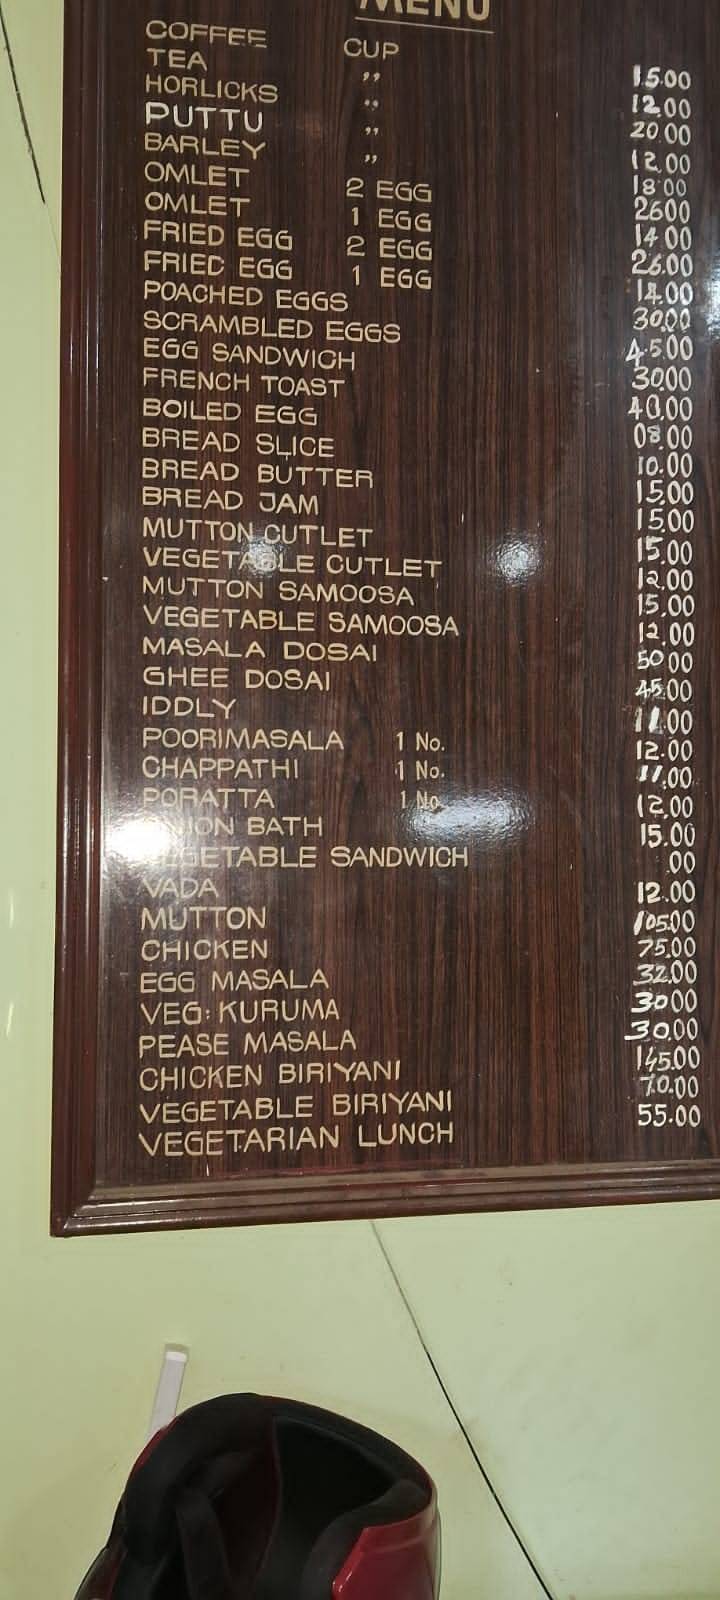 MENU
COFFEE CUP 15.00
TEA ,, 12.00
HORLICKS ,, 20.00
PUTTU ,, 12.00
BARLEY ,, 18.00
OMLET 2 EGG 2600
OMLET 1 EGG 14.00
FRIED EGG 2 EGG 26.00
FRIED EGG 1 EGG 14.00
POACHED EGGS 30.00
SCRAMBLED EGGS 45.00
EGG SANDWICH 3000
FRENCH TOAST 40.00
BOILED EGG 08.00
BREAD SLICE 10.00
BREAD BUTTER 15.00
BREAD JAM 15.00
MUTTON CUTLET 15.00
VEGETABLE CUTLET 12.00
MUTTON SAMOOSA 15.00
VEGETABLE SAMOOSA 12.00
MASALA DOSAI 50.00
GHEE DOSAI 45.00
IDDLY 11.00
POORIMASALA 1 No. 12.00
CHAPPATHI 1 No. 11.00
PORATTA 1 No. 12.00
ONION BATH 15.00
VEGETABLE SANDWICH .00
VADA 12.00
MUTTON 105.00
CHICKEN 75.00
EGG MASALA 32.00
VEG: KURUMA 30.00
PEASE MASALA 30.00
CHICKEN BIRIYANI 145.00
VEGETABLE BIRIYANI 70.00
VEGETARIAN LUNCH 55.00